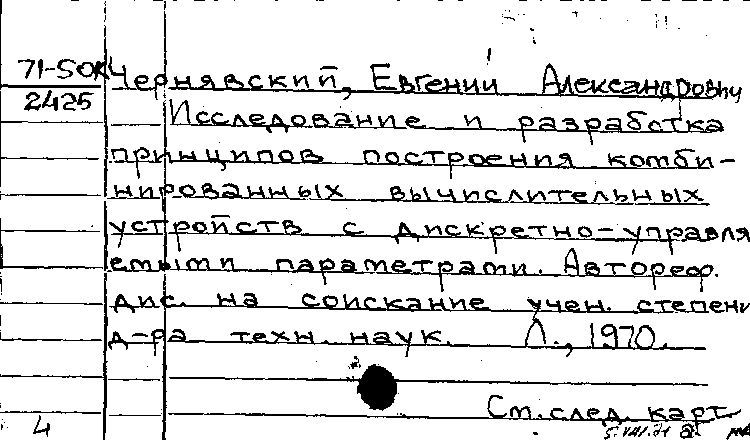 71-5OK Чернявский, Евгений Александрович
2425 Исследование и разработка
принципов построения комби-
нированных вычислительных
устройств с дискретно-управля
емыми параметрами. Автореф.
дис. на соискание учен. степени
д-ра техн. наук. Л., 1970.
См. след. карт
4